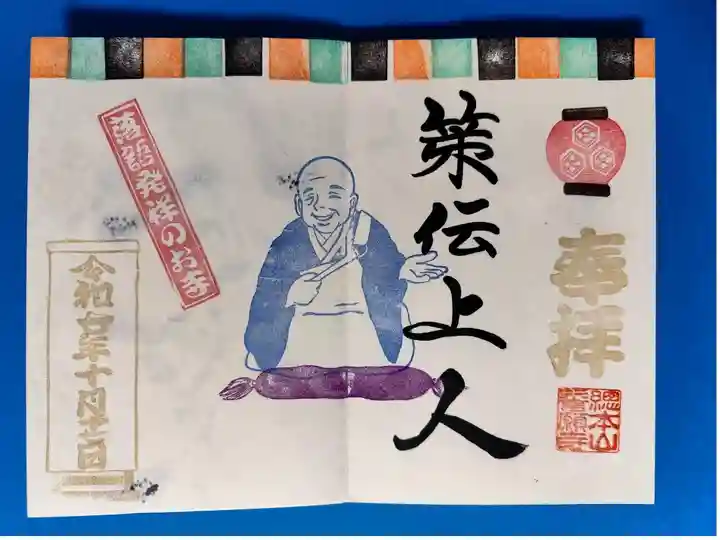 奉拝
總本山
誓願寺
策伝上人
落語発祥のお寺
令和 年十月 日